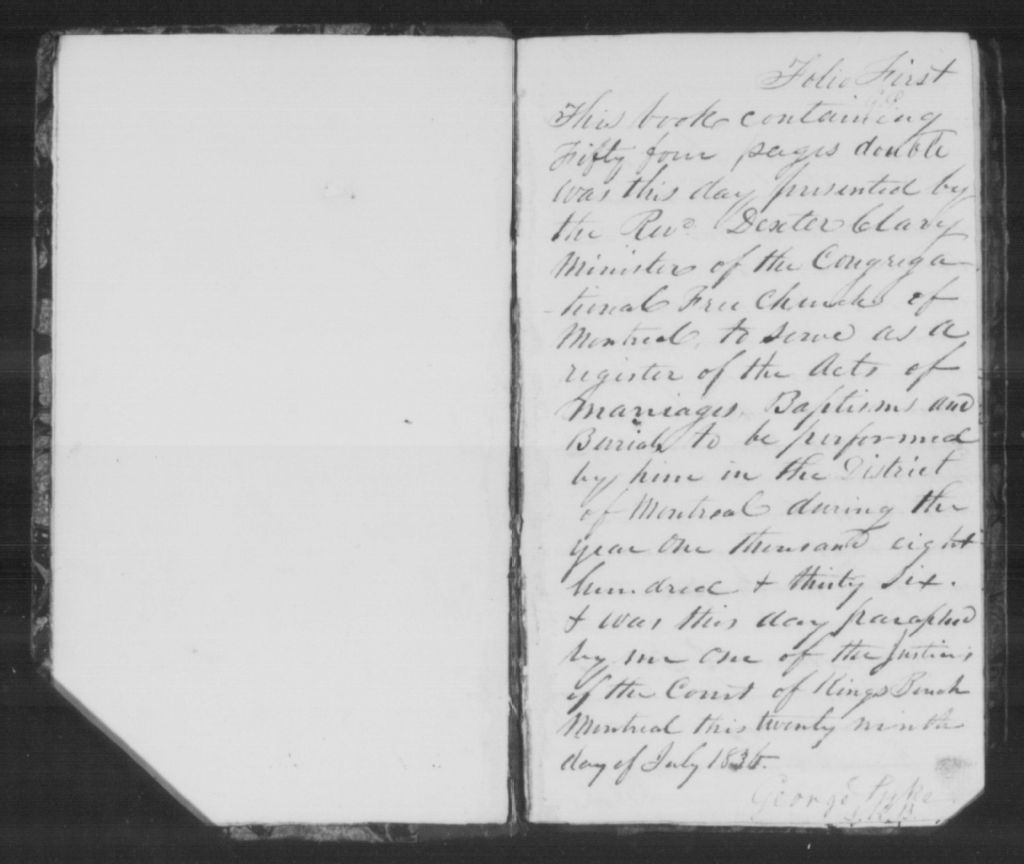 Folio First
This book containing
Fifty four pages double
was this day presented by
the Revd Dexter Clary
Minister of the Congrega
-tional Free Church of
Montreal, to serve as a
register of the Acts of
Marriages, Baptisms and
Burials to be performed
by him in the District
of Montreal during the
year One thousand eight
hundred & thirty six.
& was this day paraphed
by me One of the Justices
of the Court of Kings Bench
Montreal this twenty ninth
day of July 1836.
George Pyke